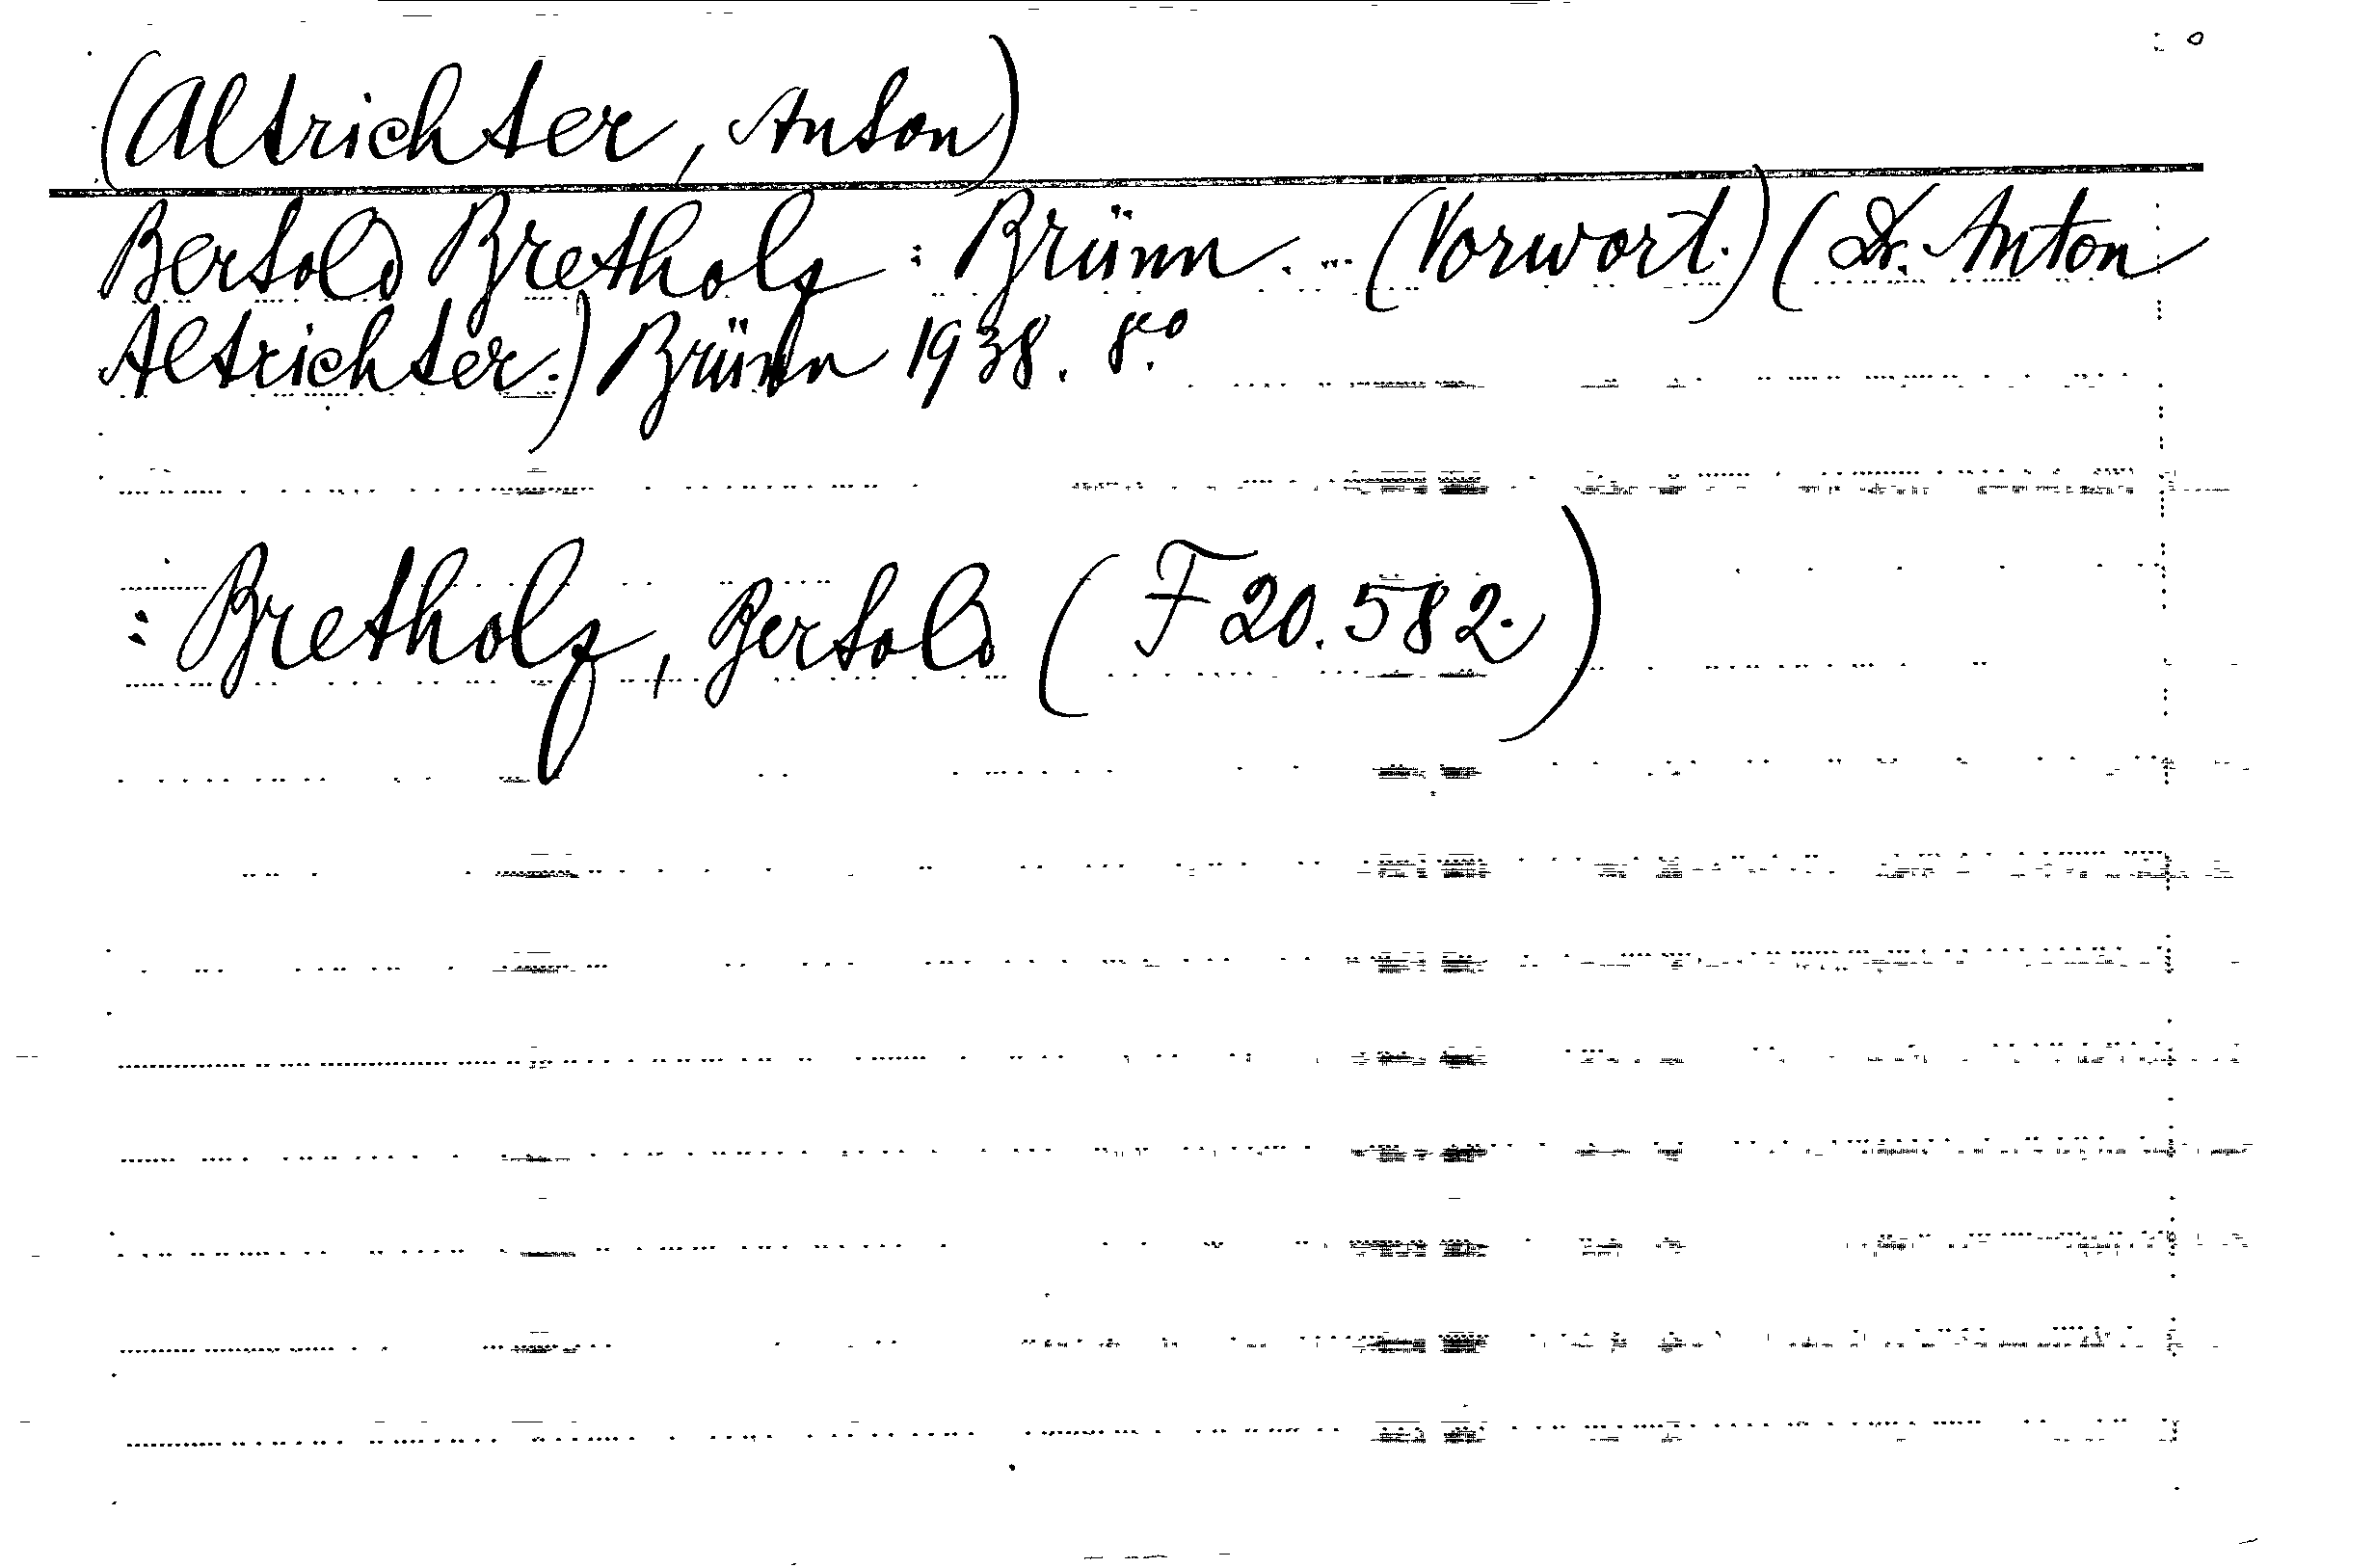 (Altrichter, Anton)
Bertold Bretholz : Brünn. ... (Vorwort.) (Dr. Anton
Altrichter.) Brünn 1938. 8.º
: Bretholz, Bertold (F 20.582.)